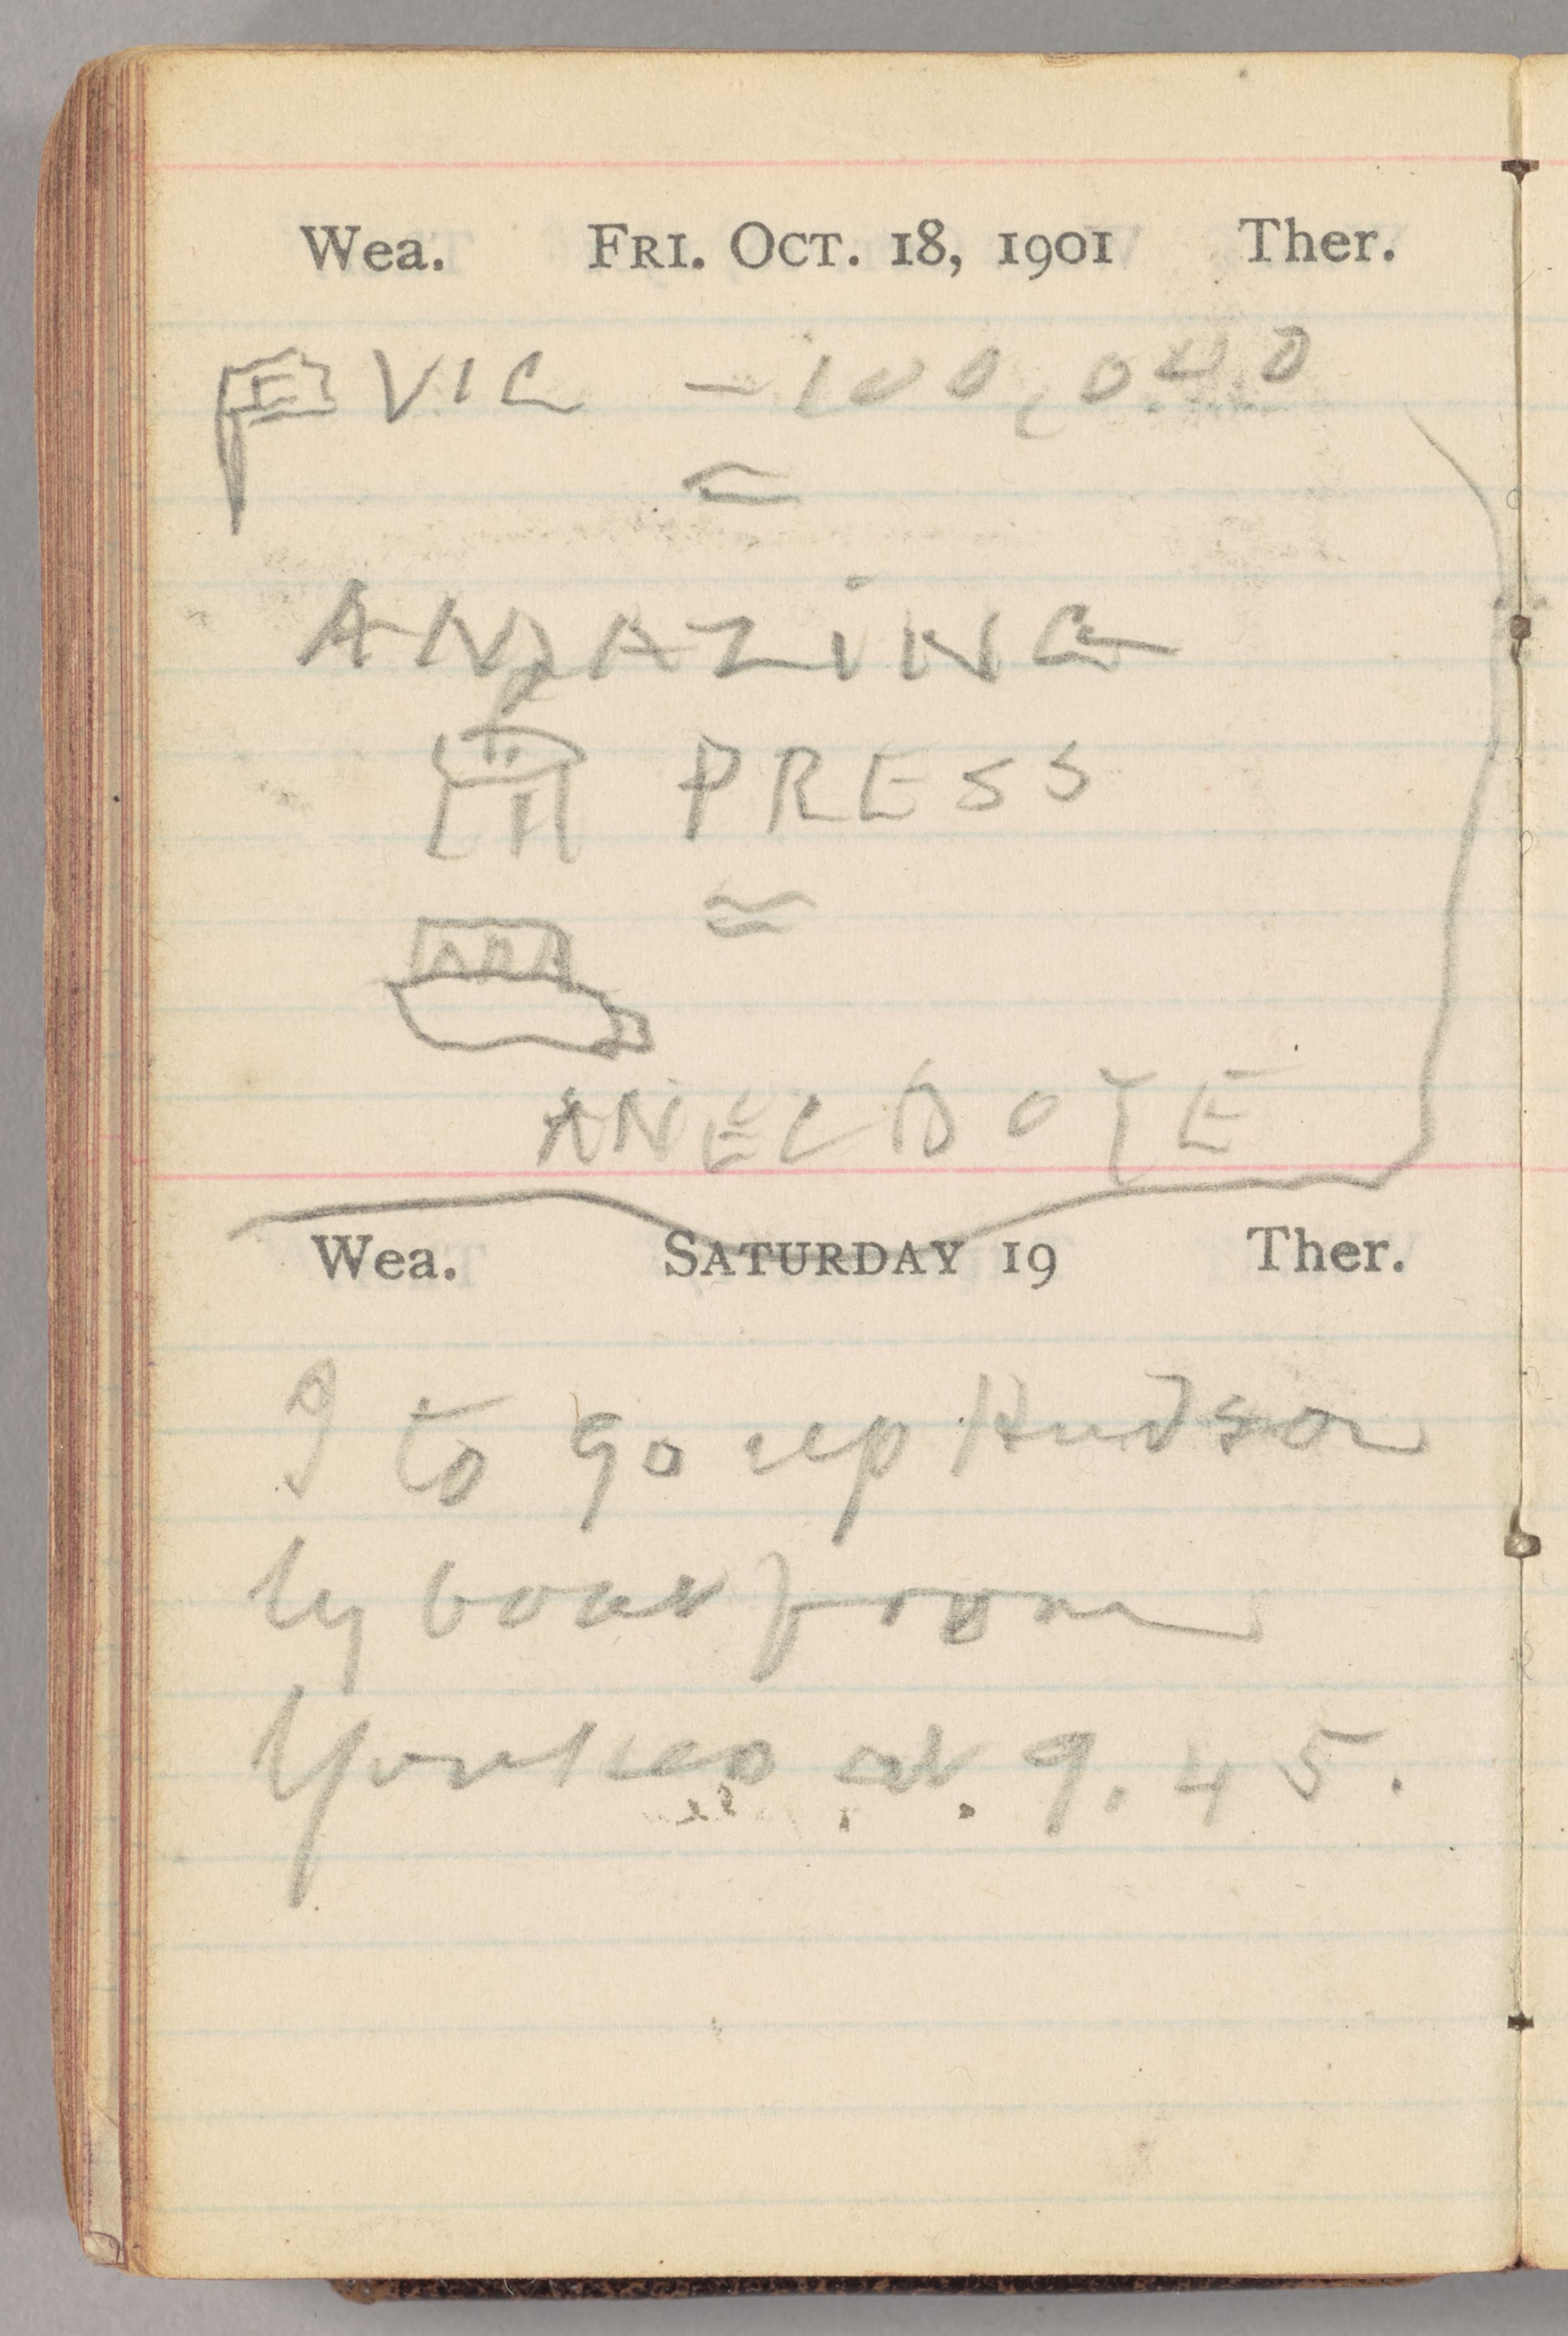 Wea. FRI. OCT. 18, 1901 Ther.
E VIC - 100,000
AMAZING
PRESS
ANECDOTE
Wea. SATURDAY 19 Ther.
I to go up Hudson
by boat from
Yonkers at 9.45.